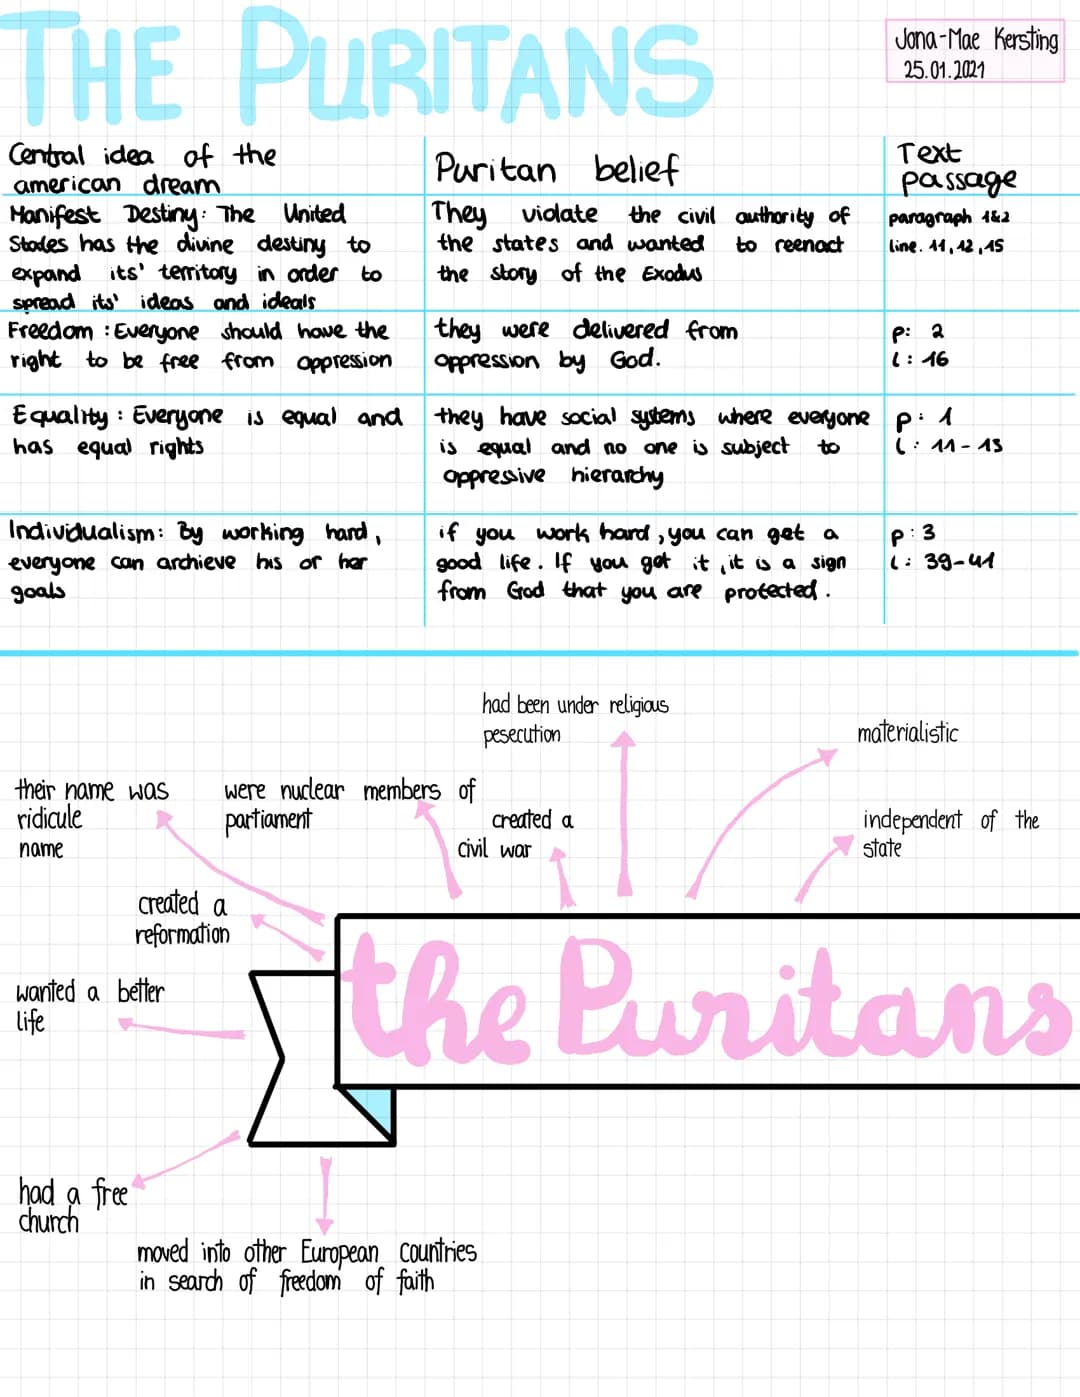 THE PURITANS
Jona-Mae Kersting
25.01.2021
Central idea of the
american dream
Puritan belief
Text
passage
Manifest Destiny: The United
States has the divine destiny to
expand its' territory in order to
spread its' ideas and ideals
They violate the civil authority of
the states and wanted to reenact
the story of the Exodus
paragraph 1&2
line. 11, 12, 15
Freedom : Everyone should have the
right to be free from oppression
they were delivered from
oppression by God.
p: 2
l: 16
Equality : Everyone is equal and
has equal rights
they have social systems where everyone
is equal and no one is subject to
oppressive hierarchy
p: 1
l: 11-13
Individualism: By working hard,
everyone can archieve his or her
goals
if you work hard, you can get a
good life. If you get it, it is a sign
from God that you are protected.
p: 3
l: 39-41
had been under religious
pesecution
materialistic
their name was
ridicule
name
were nuclear members of
partiament
created a
civil war
independent of the
state
created a
reformation
wanted a better
life
the Puritans
had a free
church
moved into other European countries
in search of freedom of faith